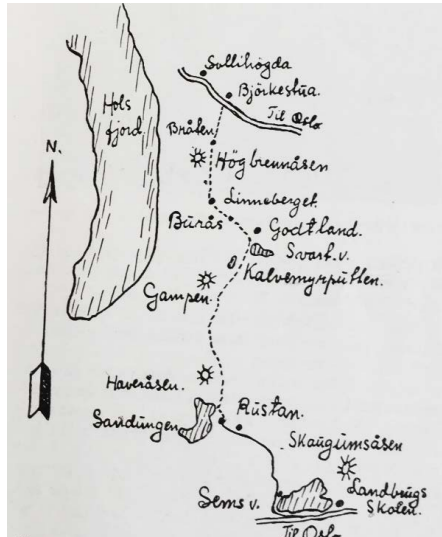 Sollihögda
Björkestua.
Til Oslo
Hols
fjord
N.
Bråten
Högbrennåsen
Linneberget.
Burås
Godtland.
Svart v.
Kalvemyrputten.
Gampen.
Haveråsen.
Sandungen
Rustan.
Skaugumsåsen
Landbrugs
Skolen.
Sems v.
Til Oslo